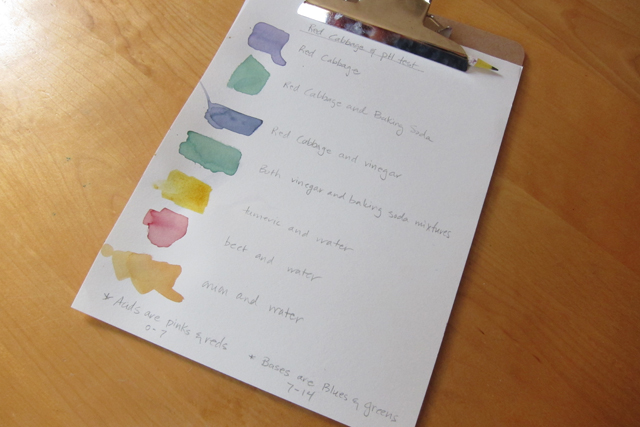 Red Cabbage & pH test
Red Cabbage
Red Cabbage and Baking Soda
Red Cabbage and vinegar
Both vinegar and baking soda mixtures
tumeric and water
beet and water
mum and water
* Acids are pinks & reds
0-7
* Bases are Blues & greens
7-14